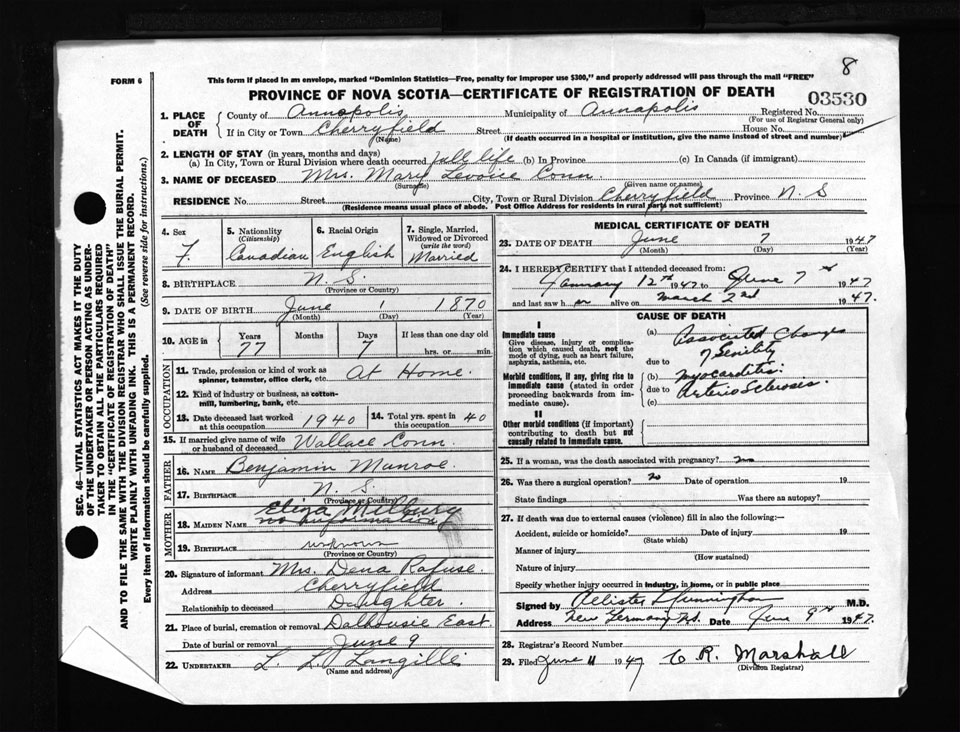 8
FORM 6
This form if placed in an envelope, marked "Dominion Statistics—Free, penalty for improper use $300," and properly addressed will pass through the mail "FREE"
PROVINCE OF NOVA SCOTIA—CERTIFICATE OF REGISTRATION OF DEATH 03530
1. PLACE OF DEATH
County of Annapolis Municipality of Annapolis Registered No.
(For use of Registrar General only)
If in City or Town Cherryfield Street House No.
(Name) (If death occurred in a hospital or institution, give the name instead of street and number)
2. LENGTH OF STAY (in years, months and days)
(a) In City, Town or Rural Division where death occurred full life (b) In Province (c) In Canada (if immigrant)
3. NAME OF DECEASED Mrs. Mary Conn
(Surname) (Given name or names)
RESIDENCE No. Street City, Town or Rural Division Cherryfield Province N. S
(Residence means usual place of abode. Post Office Address for residents in rural parts not sufficient)
4. Sex
F.
5. Nationality
(Citizenship)
Canadian
6. Racial Origin
English
7. Single, Married,
Widowed or Divorced
(write the word)
Married
8. BIRTHPLACE N. S.
(Province or Country)
9. DATE OF BIRTH June 1 1870
(Month) (Day) (Year)
10. AGE in Years Months Days If less than one day old
77 7 hrs. or min.
OCCUPATION
11. Trade, profession or kind of work as
spinner, teamster, office clerk, etc. At Home.
12. Kind of industry or business, as cotton-
mill, lumbering, bank, etc.
13. Date deceased last worked
at this occupation 1940
14. Total yrs. spent in
this occupation 40
15. If married give name of wife
or husband of deceased Wallace Conn.
FATHER
16. NAME Benjamin Munroe.
17. BIRTHPLACE N. S.
(Province or Country)
MOTHER
Eliza Milbury
18. MAIDEN NAME no information
19. BIRTHPLACE unknown
(Province or Country)
20. Signature of informant Mrs. Dena Rafuse.
Address Cherryfield
Relationship to deceased Daughter.
21. Place of burial, cremation or removal Dalhousie East.
Date of burial or removal June 9
22. UNDERTAKER L. L. Langille
(Name and address)
MEDICAL CERTIFICATE OF DEATH
23. DATE OF DEATH June 7 1947
(Month) (Day) (Year)
24. I HEREBY CERTIFY that I attended deceased from:
January 12 1947 to June 7 1947
and last saw h alive on March 2nd 1947.
CAUSE OF DEATH
I
Immediate cause
Give disease, injury or complica-
tion which caused death, not the
mode of dying, such as heart failure,
asphyxia, asthenia, etc.
(a) Associated Changes
due to of Senility
Morbid conditions, if any, giving rise to
immediate cause (stated in order
proceeding backwards from im-
mediate cause).
(b) Myocarditis.
due to Arterio Scleroses.
(c)
II
Other morbid conditions (if important)
contributing to death but not
causally related to immediate cause.
25. If a woman, was the death associated with pregnancy? no
26. Was there a surgical operation? no Date of operation 19
State findings Was there an autopsy?
27. If death was due to external causes (violence) fill in also the following:—
Accident, suicide or homicide? Date of injury 19
(State which)
Manner of injury
(How sustained)
Nature of injury
Specify whether injury occurred in industry, in home, or in public place
Signed by M.D.
Address New Germany N.S. Date June 9th 1947.
28. Registrar's Record Number
29. Filed June 11 1947 C. R. Marshall
(Division Registrar)
SEC. 46—VITAL STATISTICS ACT MAKES IT THE DUTY
OF THE UNDERTAKER OR PERSON ACTING AS UNDER-
TAKER TO OBTAIN ALL THE PARTICULARS REQUIRED
IN THE "CERTIFICATE OF REGISTRATION OF DEATH"
AND TO FILE THE SAME WITH THE DIVISION REGISTRAR WHO SHALL ISSUE THE BURIAL PERMIT.
WRITE PLAINLY WITH UNFADING INK. THIS IS A PERMANENT RECORD.
Every item of information should be carefully supplied. (See reverse side for instructions.)